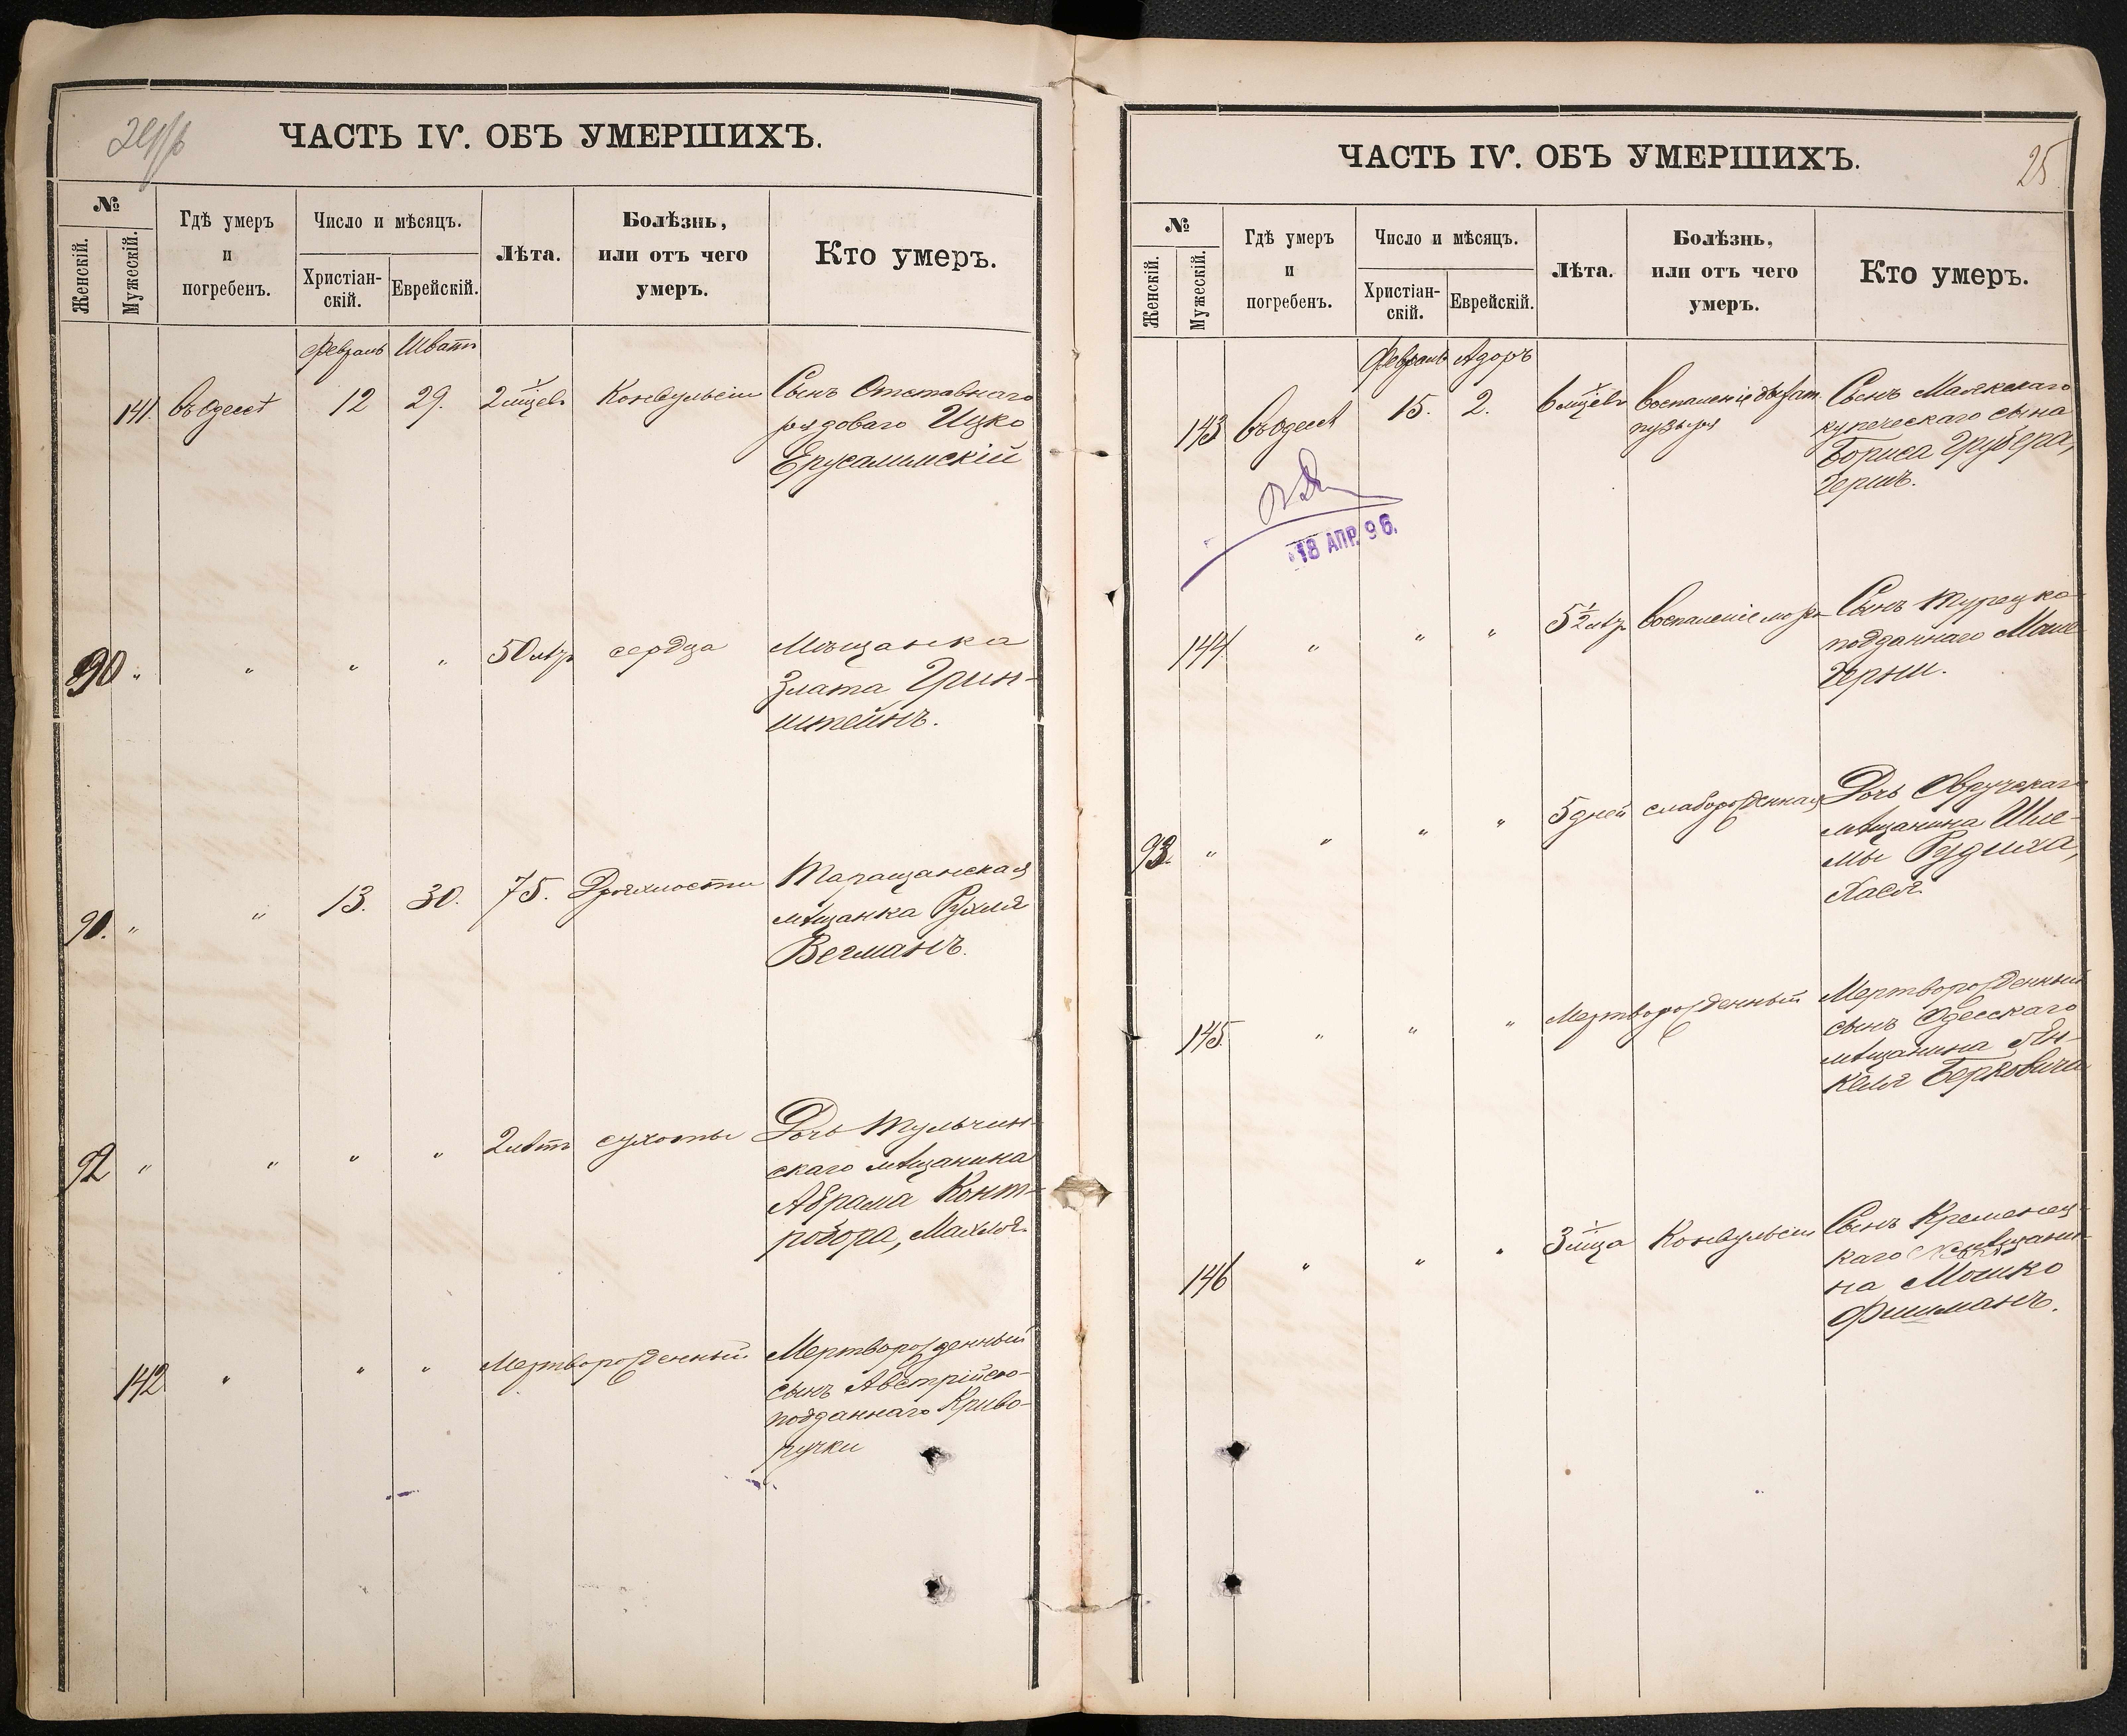 ЧАСТЬ IV. ОБЪ УМЕРШИХЪ.
№
Женскій.
Мужескій.
Гдѣ умеръ
и
погребенъ.
Число и мѣсяцъ.
Христіан-
скій.
Еврейскій.
Лѣта.
Болѣзнь,
или отъ чего
умеръ.
Кто умеръ.
Февраль Шватъ
141. въ Одессѣ 12 29. 2 мѣсцевъ Конвульсіи Сынъ Отставнаго
рядоваго Ицко
Ерусалимскій
90 " " " " 50 лѣтъ сердца Мѣщанка
Злата Грин-
штейнъ.
91. " " 13. 30. 75. Дряхлости Таращанская
мѣщанка Рухля
Вегманъ.
92 " " " " 2 лѣтъ сухоты Дочь Тульчин-
скаго мѣщанина
Абрама Конт-
робора, Махля.
142 " " " Мертворожденный Мертворожденный
сынъ Австрійско-
подданнаго Криво-
ручки
ЧАСТЬ IV. ОБЪ УМЕРШИХЪ.
25
№
Женскій.
Мужескій.
Гдѣ умеръ
и
погребенъ.
Число и мѣсяцъ.
Христіан-
скій.
Еврейскій.
Лѣта.
Болѣзнь,
или отъ чего
умеръ.
Кто умеръ.
Февраль Адоръ
143 въ Одессѣ 15. 2. 6 мѣсцевъ воспаленіе Сынъ Маякскаго
пузыря купеческаго сына
Бориса Грубера,
Гершъ.
18 АПР. 96.
144. " " " 5½ лѣтъ воспаленіе мозга Сынъ Турецко-
подданнаго Моше
Герши.
93. " " " " 5 дней слаборожденная Дочь Овручскаго
мѣщанина Шле-
мы Рудиха,
Хася.
145. " " " Мертворожденный Мертворожденный
сынъ Одесскаго
мѣщанина Ян-
келя Берковича
146 " " " 3 мѣсца Конвульсіи Сынъ Кременец-
каго мѣщани-
на Мошко
Фишманъ.